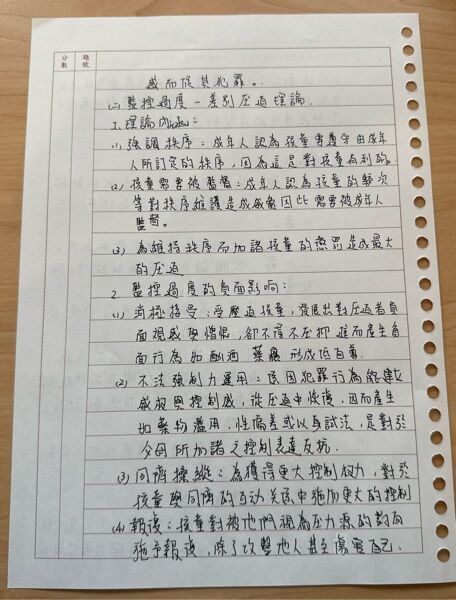 題號
分數
感而促其犯罪。
(二) 監控過度－差別壓迫理論
1. 理論內涵：
(1) 強調秩序：成年人認為孩童需遵守由成年
人所訂定的秩序，因為這是對孩童有利的。
(2) 孩童需要被監督：成年人認為孩童的頻次
等對秩序維護造成威脅因此需要被成年人
監督。
(3) 為維持秩序而加諸孩童的懲罰造成最大
的压迫
2. 監控過度的負面影響：
(1) 消極接受：受壓迫孩童，發展出對压迫者負
面視感與憎恨，卻不得不压抑進而產生負
面行為如酗酒 藥癮 形成低自尊.
(2) 不法強制力運用：係因犯罪行為能建立
威权與控制感，從压迫中恢復，因而產生
如藥物濫用、性偏差或以身試法，是對於
父母所加諸之控制表達反抗.
(3) 同儕操縱：為獲得更大控制权力，對於
孩童與同儕的互动关係中施加更大的控制
(4) 報復：孩童對被他們視為压力源的对面
施予報復，除了攻擊他人甚至傷害自己.